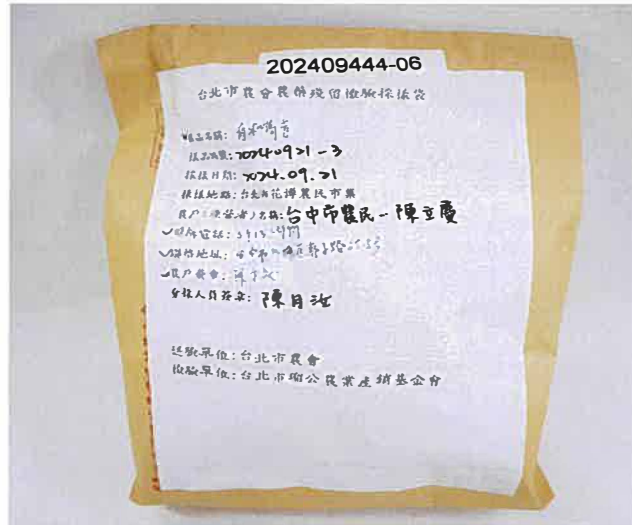 202409444-06
台北市農會農藥殘留檢驗採樣袋
樣品名稱:
樣品編號: 20240921-3
採樣日期: 2024.09.21
採樣地點: 台北市花博農民市集
農戶(經營者)名稱: 台中市農民-陳立慶
✓聯絡電話:
✓聯絡地址:
✓農戶簽章:
會採人員簽章: 陳月
送驗單位: 台北市農會
檢驗單位: 台北市瑠公農業產銷基金會